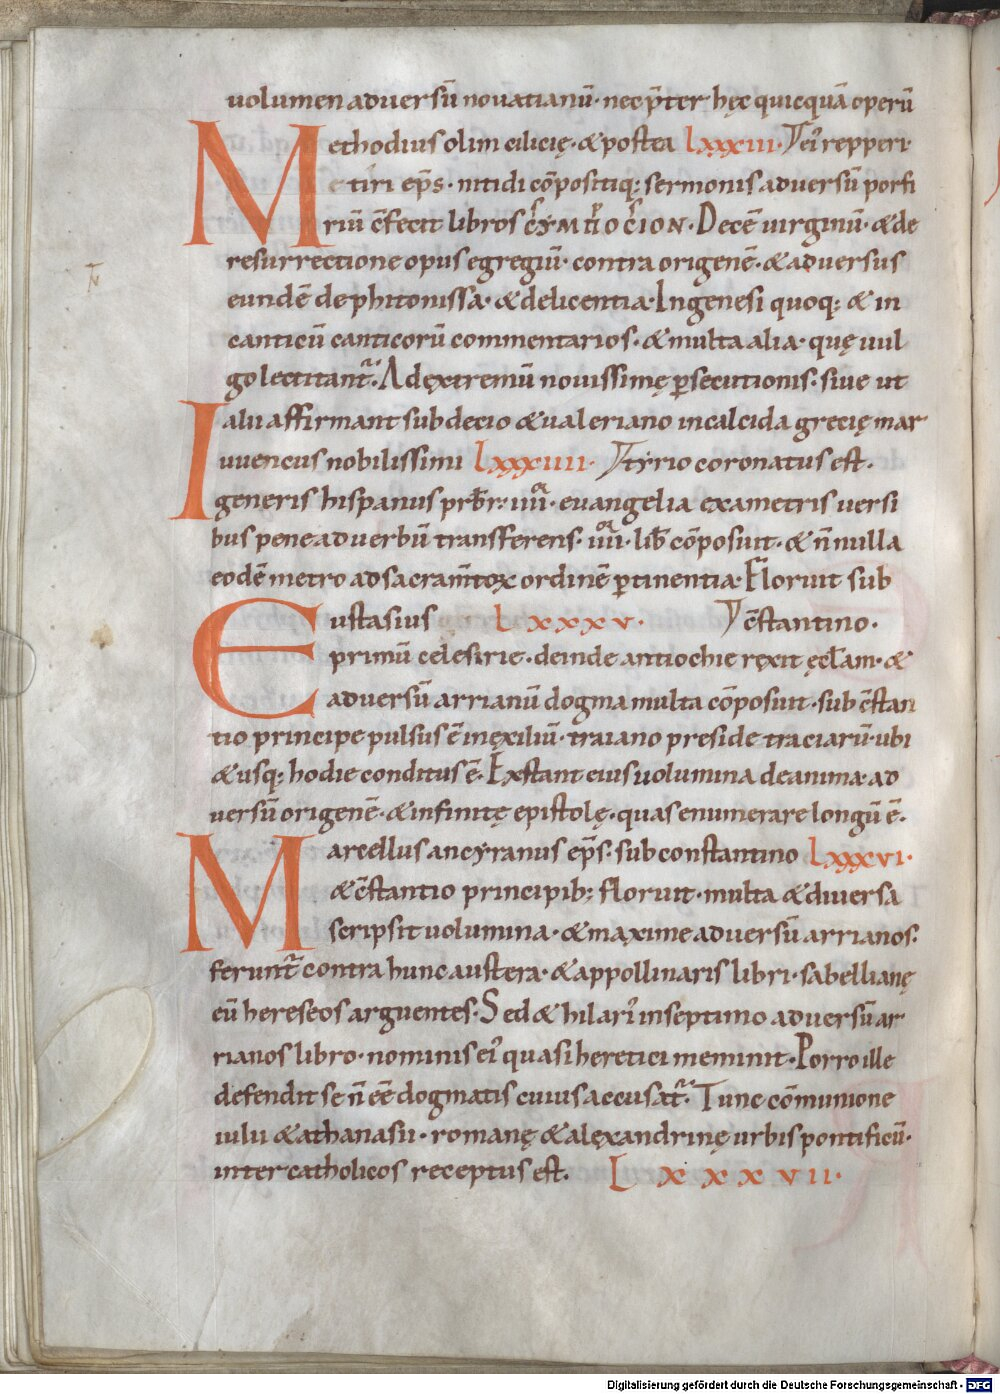 uolumen aduersū nouatianū· nec p̄ter hęc quicquā operū
Methodius olim cilicię· & postea Lxxxiii· ei᾽ repperi·
tiri ep̄s· nitidi cōpositiq; sermonis aduersū porfi
riū c̄fecit libros CYMΠOCION· Decē uirginū· & de
resurrectione opus egregiū· contra origenē· & aduersus
eundē de phitonissa· & delicentia· In genesi quoq; & in
canticū canticorū commentarios· & multa alia· quę uul
go lectitant᷑· Ad extremū nouissimę ꝑsecutionis· siue ut
alii affirmant sub decio & ualeriano in calcida grecię mar
Iuuencus nobilissimi Lxxxiiii· tyrio coronatus est·
generis hispanus prb̄r· iiii^or· euangelia exametris uersi
bus pene ad uerbū transferens· iiii^or· lib̄ cōposuit· & n̄nulla
eodē metro ad sacram̄toꝝ ordinē ꝑtinentia· Floruit sub
Eustasius Lxxxv· c̄stantino·
primū celesirie· deinde antiochie rexit ęcl̄am· &
aduersū arrianū dogma multa cōposuit· sub c̄stan
tio principe pulsus ē in exiliū· traiano preside traciarū· ubi
& usq; hodie conditus ē· Exstant eius uolumina de anima· ad
uersū origenē· & infinitę epistolę· quas enumerare longū ē·
Marcellus ancyranus ep̄s· sub constantino Lxxxvi·
& c̄stantio principib; floruit· multa & diuersa
scripsit uolumina· & maxime aduersū arrianos·
ferunt᷑ contra hunc austera· & appollinaris libri· sabellianę
eū hereseos arguentes· Sed & hilari᾽ in septimo aduersū ar
rianos libro· nominis ei᾽ quasi heretici meminit· Porro ille
defendit se n̄ eē dogmatis cuius accusat᷑· Tunc cōmunione
iulii & athanasii· romanę & alexandrinę urbis pontificū·
inter catholicos receptus est· Lxxxvii·
Digitalisierung gefördert durch die Deutsche Forschungsgemeinschaft - DFG